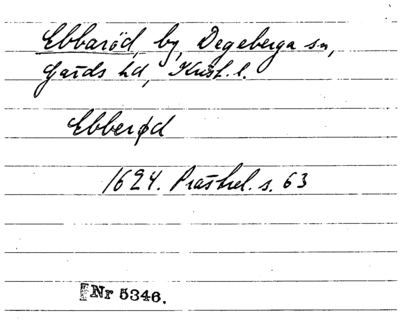 Ebbarød, by, Degeberga sn,
Gärds hd, Krist. l.
Ebberød
1624. Prästrel. s. 63
Nr 5346.